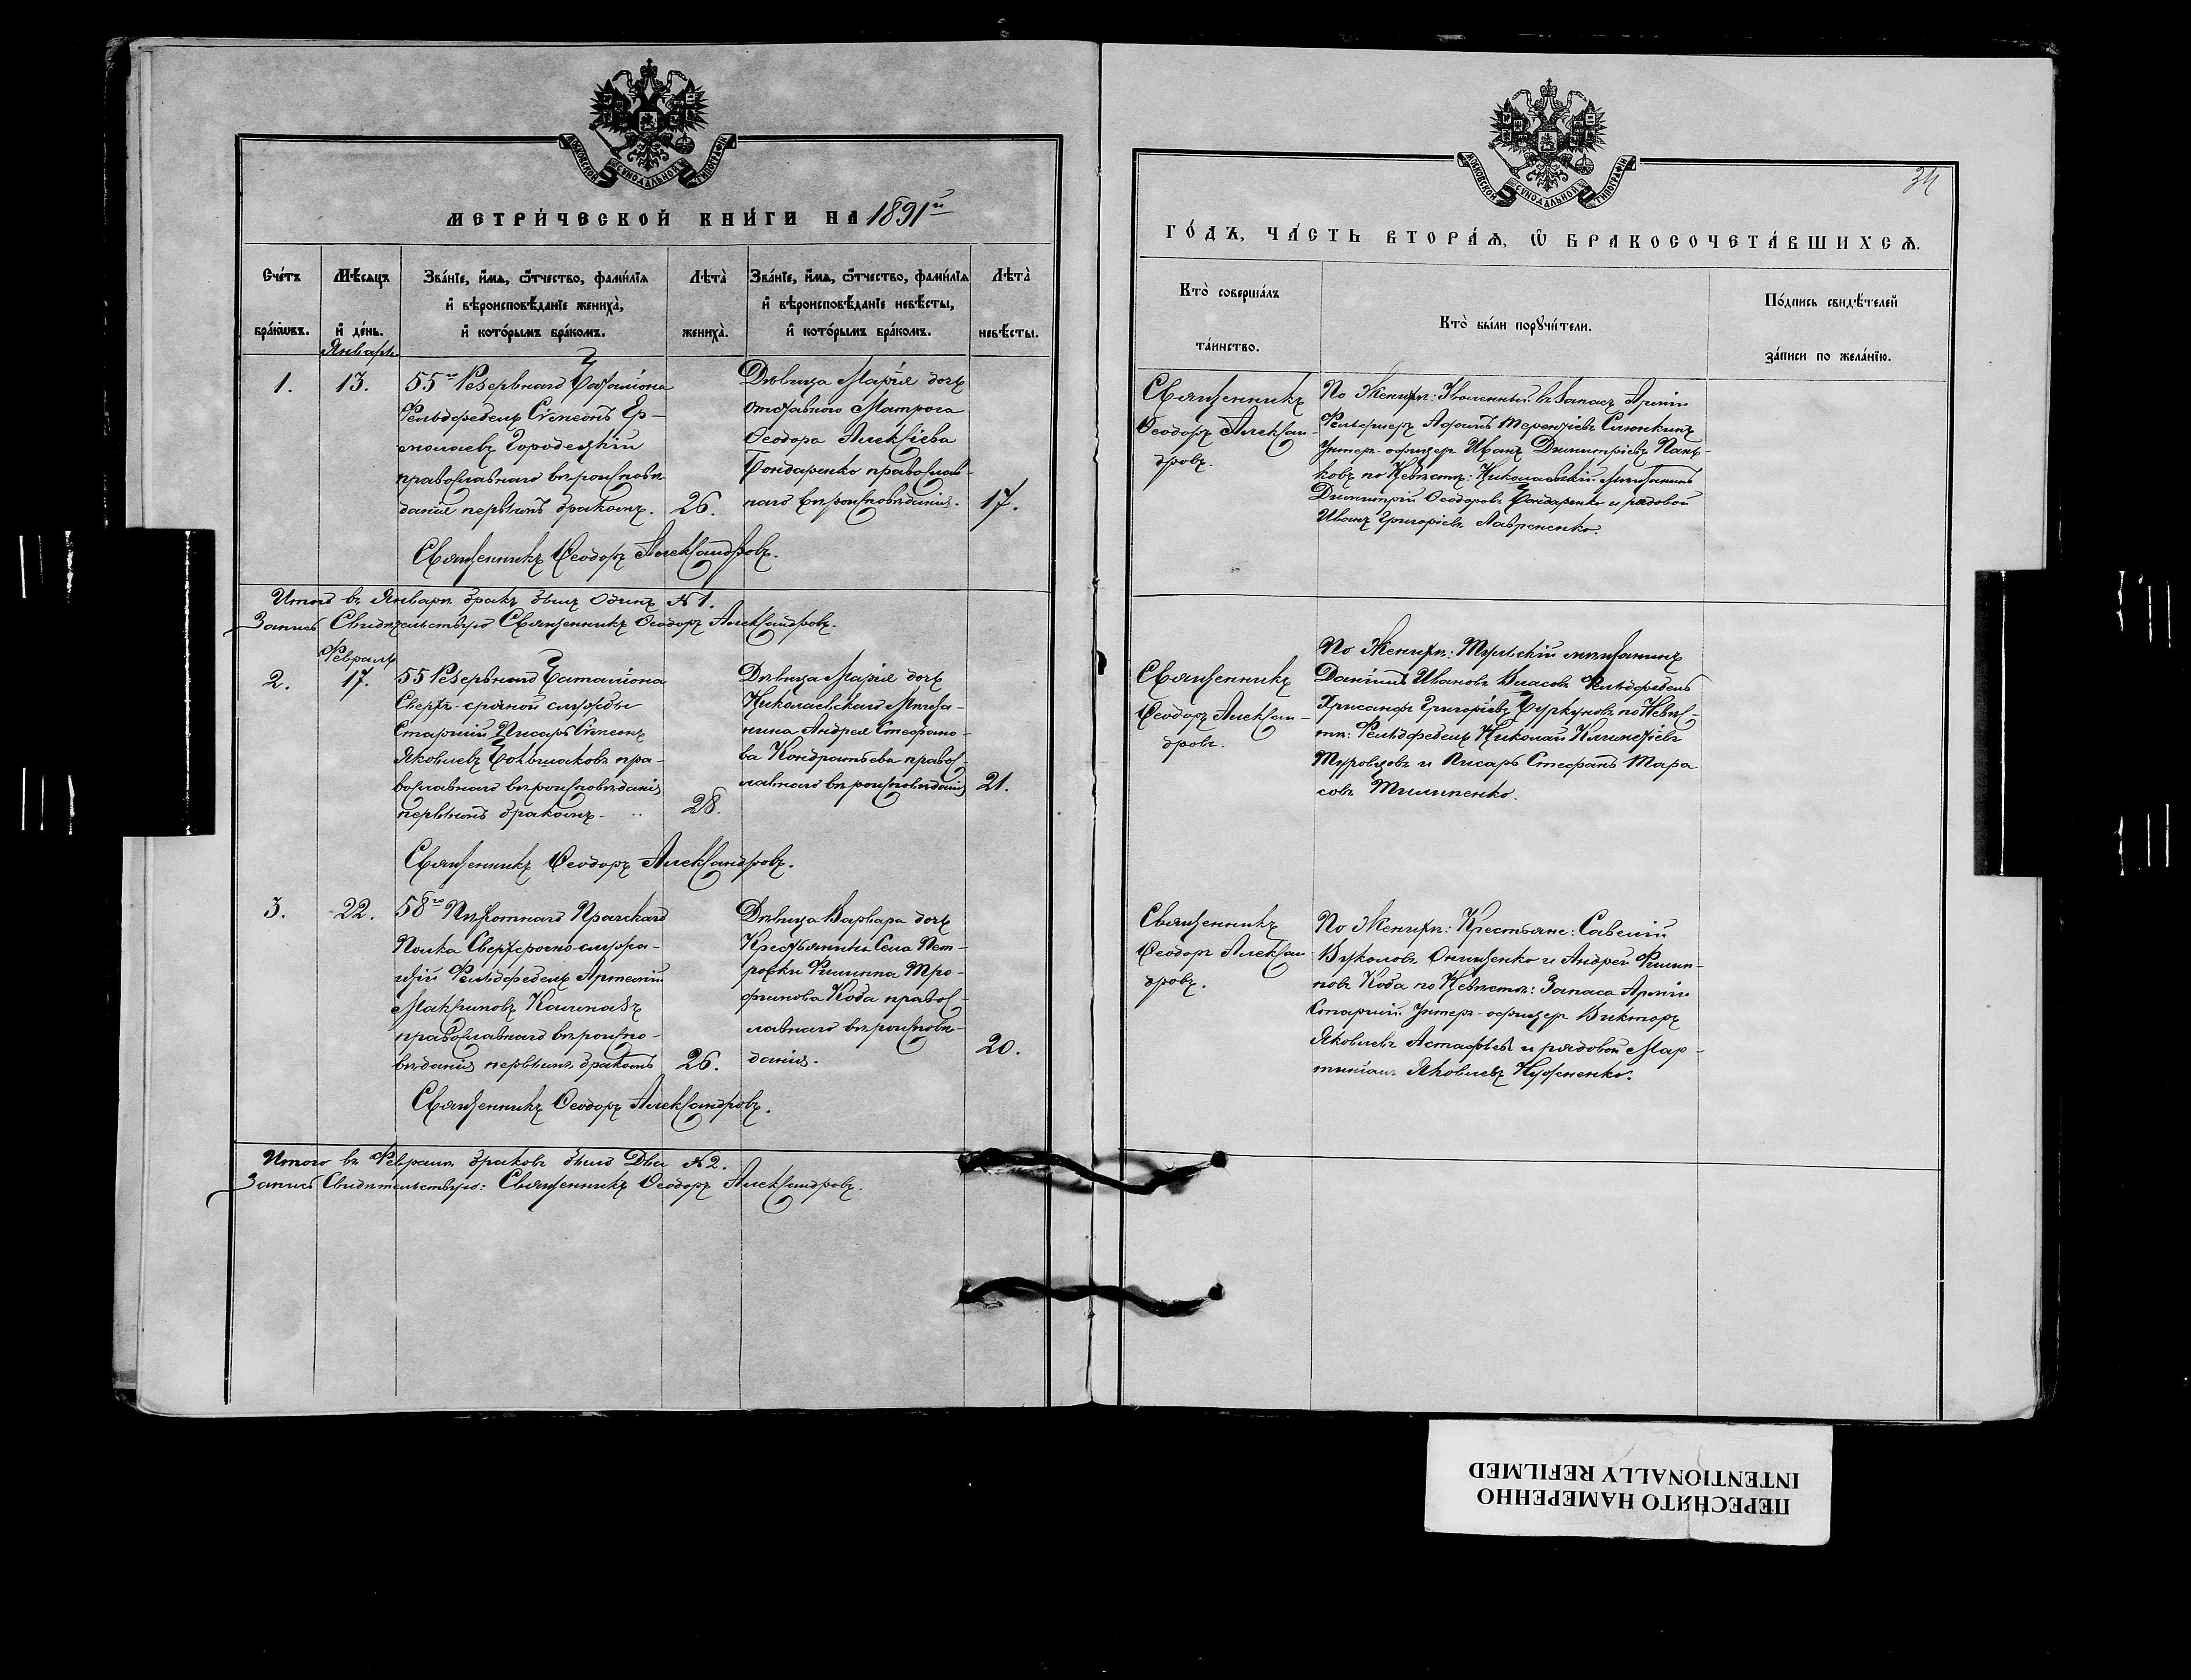 МОСКОВСКОЙ СѴНОДАЛЬНОЙ ТИПОГРАФІИ
МЕТРИ́ЧЕСКОЙ КНИ́ГИ НА 1891й
Сче́тъ бра́кѡвъ.
Мѣ́сяцъ и҆ де́нь.
Зва́нїе, и҆́мѧ, ѻ҆́тчество, фами́лїѧ
и҆ вѣроисповѣ́данїе жениха̀,
и҆ кото́рымъ бра́комъ.
Лѣта̀ жениха̀.
Зва́нїе, и҆́мѧ, ѻ҆́тчество, фами́лїѧ
и҆ вѣроисповѣ́данїе невѣ́сты,
и҆ кото́рымъ бра́комъ.
Лѣта̀ невѣ́сты.
Январь
1.
13.
55го Резервнаго Баталіона
Фельдфебель Сѵмеонъ Ер-
молаевъ Городецкій
православнаго вѣроисповѣ-
данія первымъ бракомъ.
26.
Дѣвица Марія дочь
отставного Матроса
Ѳеодора Алексіева
Бондаренко православ-
наго вѣроисповѣданія.
17.
Священникъ Ѳеодоръ Александровъ.
Итого въ Январѣ бракъ былъ Одинъ №1.
Запись Свидѣтельствую Священникъ Ѳеодоръ Александровъ.
Февраль
2.
17.
55 Резервнаго Баталіона
Сверхъ-срочной службы
Старшій Писарь Сѵмеонъ
Яковлевъ Большаковъ пра-
вославнаго вѣроисповѣданія
первымъ бракомъ.
28.
Дѣвица Марія дочь
Николаевскаго Мѣща-
нина Андрея Стефано-
ва Кондратьева правос-
лавнаго вѣроисповѣданія
21.
Священникъ Ѳеодоръ Александровъ.
3.
22.
58го Пѣхотнаго Прагскаго
Полка Сверхсрочно-служа-
щій Фельдфебель Артемій
Максимовъ
православнаго вѣроиспо-
вѣданія первымъ бракомъ
26.
Дѣвица Варвара дочь
Крестьянина Села Пет-
ровки Филиппа Тро-
фимова Коба правос-
лавнаго вѣроисповѣ-
данія.
20.
Священникъ Ѳеодоръ Александровъ.
Итого въ Февралѣ браковъ было Два №2.
Запись Свидѣтельствую: Священникъ Ѳеодоръ Александровъ.
МОСКОВСКОЙ СѴНОДАЛЬНОЙ ТИПОГРАФІИ
34
ГО́ДЪ, ЧА́СТЬ ВТОРА́Ѧ, Ѡ҆ БРАКОСОЧЕТА́ВШИХСѦ.
Кто̀ соверша́лъ
та́инство.
Кто̀ бы́ли порꙋчи́тели.
По́дпись свидѣ́телей
за́писи по жела́нїю.
Священникъ
Ѳеодоръ Алексан-
дровъ.
По Женихѣ: Уволенный въ Запасъ Арміи
Фельдшеръ Терентіевъ
Унтеръ-офицеръ Иванъ Димитріевъ Пань-
ковъ по Невѣстѣ: Николаевскій мѣщанинъ
Димитрій Ѳеодоровъ Бондаренко и рядовой
Иванъ Григоріевъ Лавриненко.
Священникъ
Ѳеодоръ Алексан-
дровъ.
По Женихѣ: Тульскій мѣщанинъ
Даніилъ Ивановъ Власовъ Фельдфебель
Хрисанфъ Григоріевъ по Невѣс-
тѣ: Фельдфебель Николай
и Писарь Стефанъ Тара
совъ
Священникъ
Ѳеодоръ Алексан
дровъ.
По Женихѣ: Крестьяне: Савелій
Вуколовъ Онищенко и Андрей Филип-
повъ Коба по Невѣстѣ: Запаса Арміи
Старшій Унтеръ-офицеръ Викторъ
Яковлевъ Астафьевъ и рядовой Мар-
тиніанъ Яковлевъ
ПЕРЕСНЯТО НАМЕРЕННО
INTENTIONALLY REFILMED